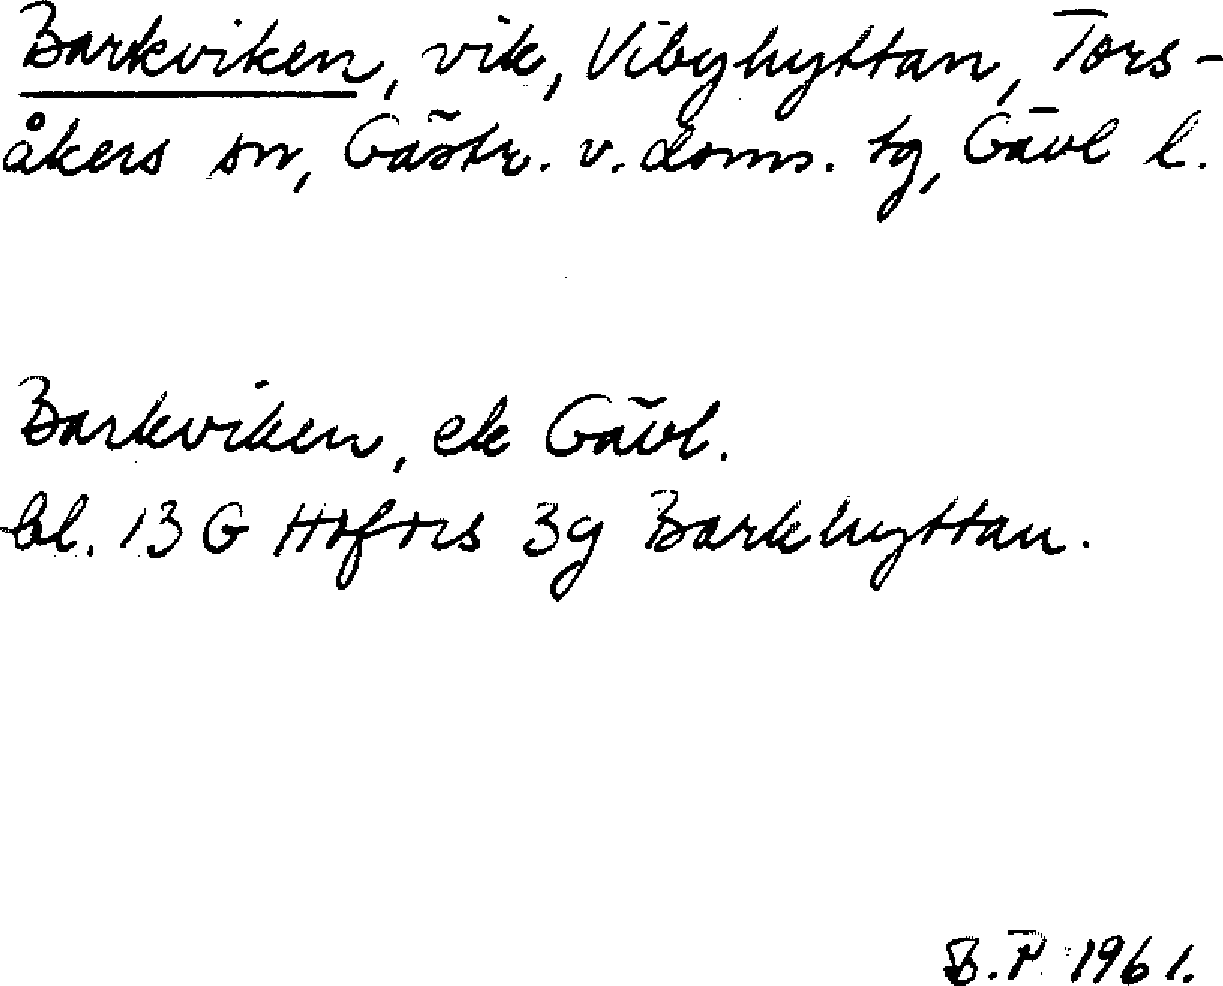 Barkviken, vik, Vibyhyttan, Tors-
åkers sn, Gästr. v. doms. tg, Gävl l.
Barkviken, ek Gävl.
bl. 13 G Hofors 3g Barkhyttan.
B.P 1961.